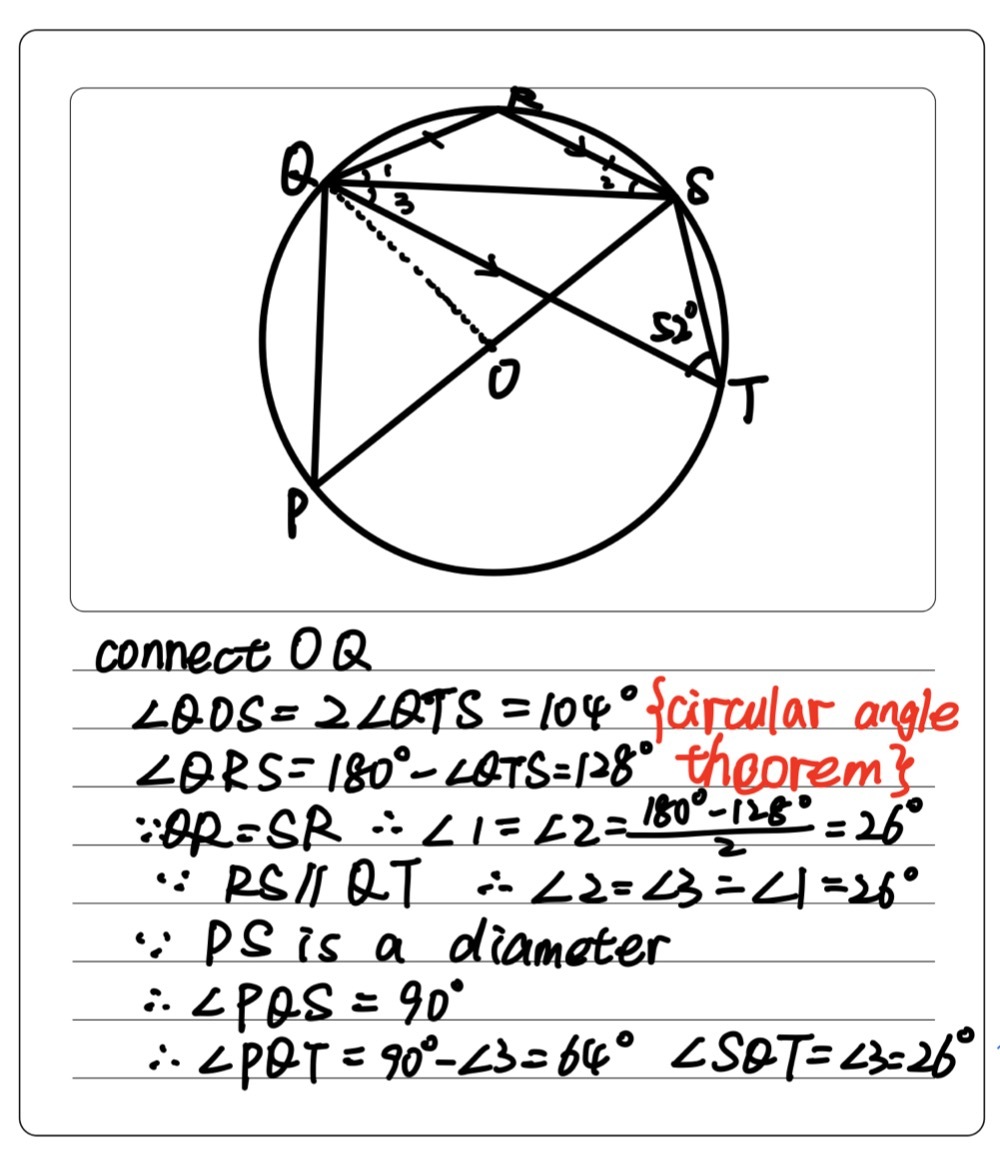 R
Q
1
2
S
3
52°
O
T
P
connect OQ
∠QOS = 2∠QTS = 104° {circular angle
∠QRS = 180° - ∠QTS = 128° theorem}
∵ QR = SR ∴ ∠1 = ∠2 = (180° - 128°)/2 = 26°
∵ RS // QT ∴ ∠2 = ∠3 = ∠1 = 26°
∵ PS is a diameter
∴ ∠PQS = 90°
∴ ∠PQT = 90° - ∠3 = 64° ∠SQT = ∠3 = 26°